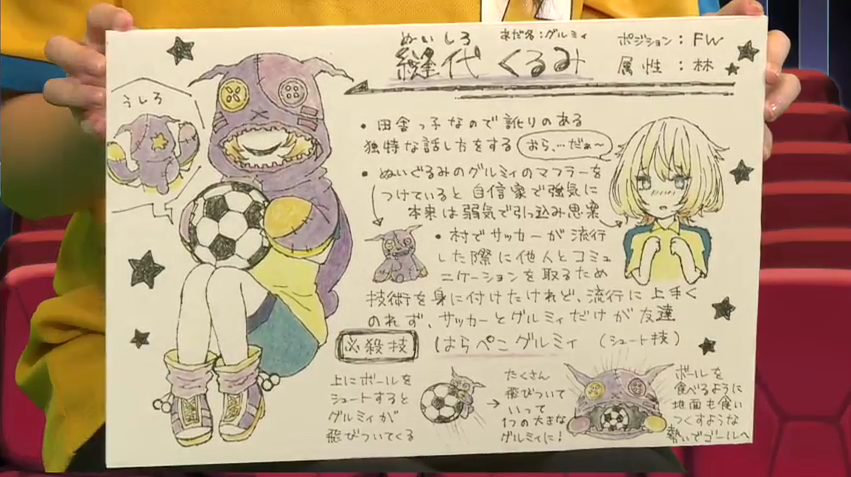 ぬいしろ
あだ名：グルミィ
縫代 くるみ
ポジション：FW
属性：林
うしろ
・田舎っ子なので訛りのある
独特な話し方をする
おら、…だぁ〜
・ぬいぐるみのグルミィのマフラーを
つけていると自信家で強気に
本来は弱気で引っ込み思案
・村でサッカーが流行
した際に他人とコミュ
ニケーションを取るため
技術を身に付けたけれど、流行に上手く
のれず、サッカーとグルミィだけが友達
必殺技
はらぺこグルミィ （シュート技）
上にボールを
シュートすると
グルミィが
飛びついてくる
たくさん
飛びついて
いって
1つの大きな
グルミィに！
ボールを
食べるように
地面も食い
つくすような
勢いでゴールへ